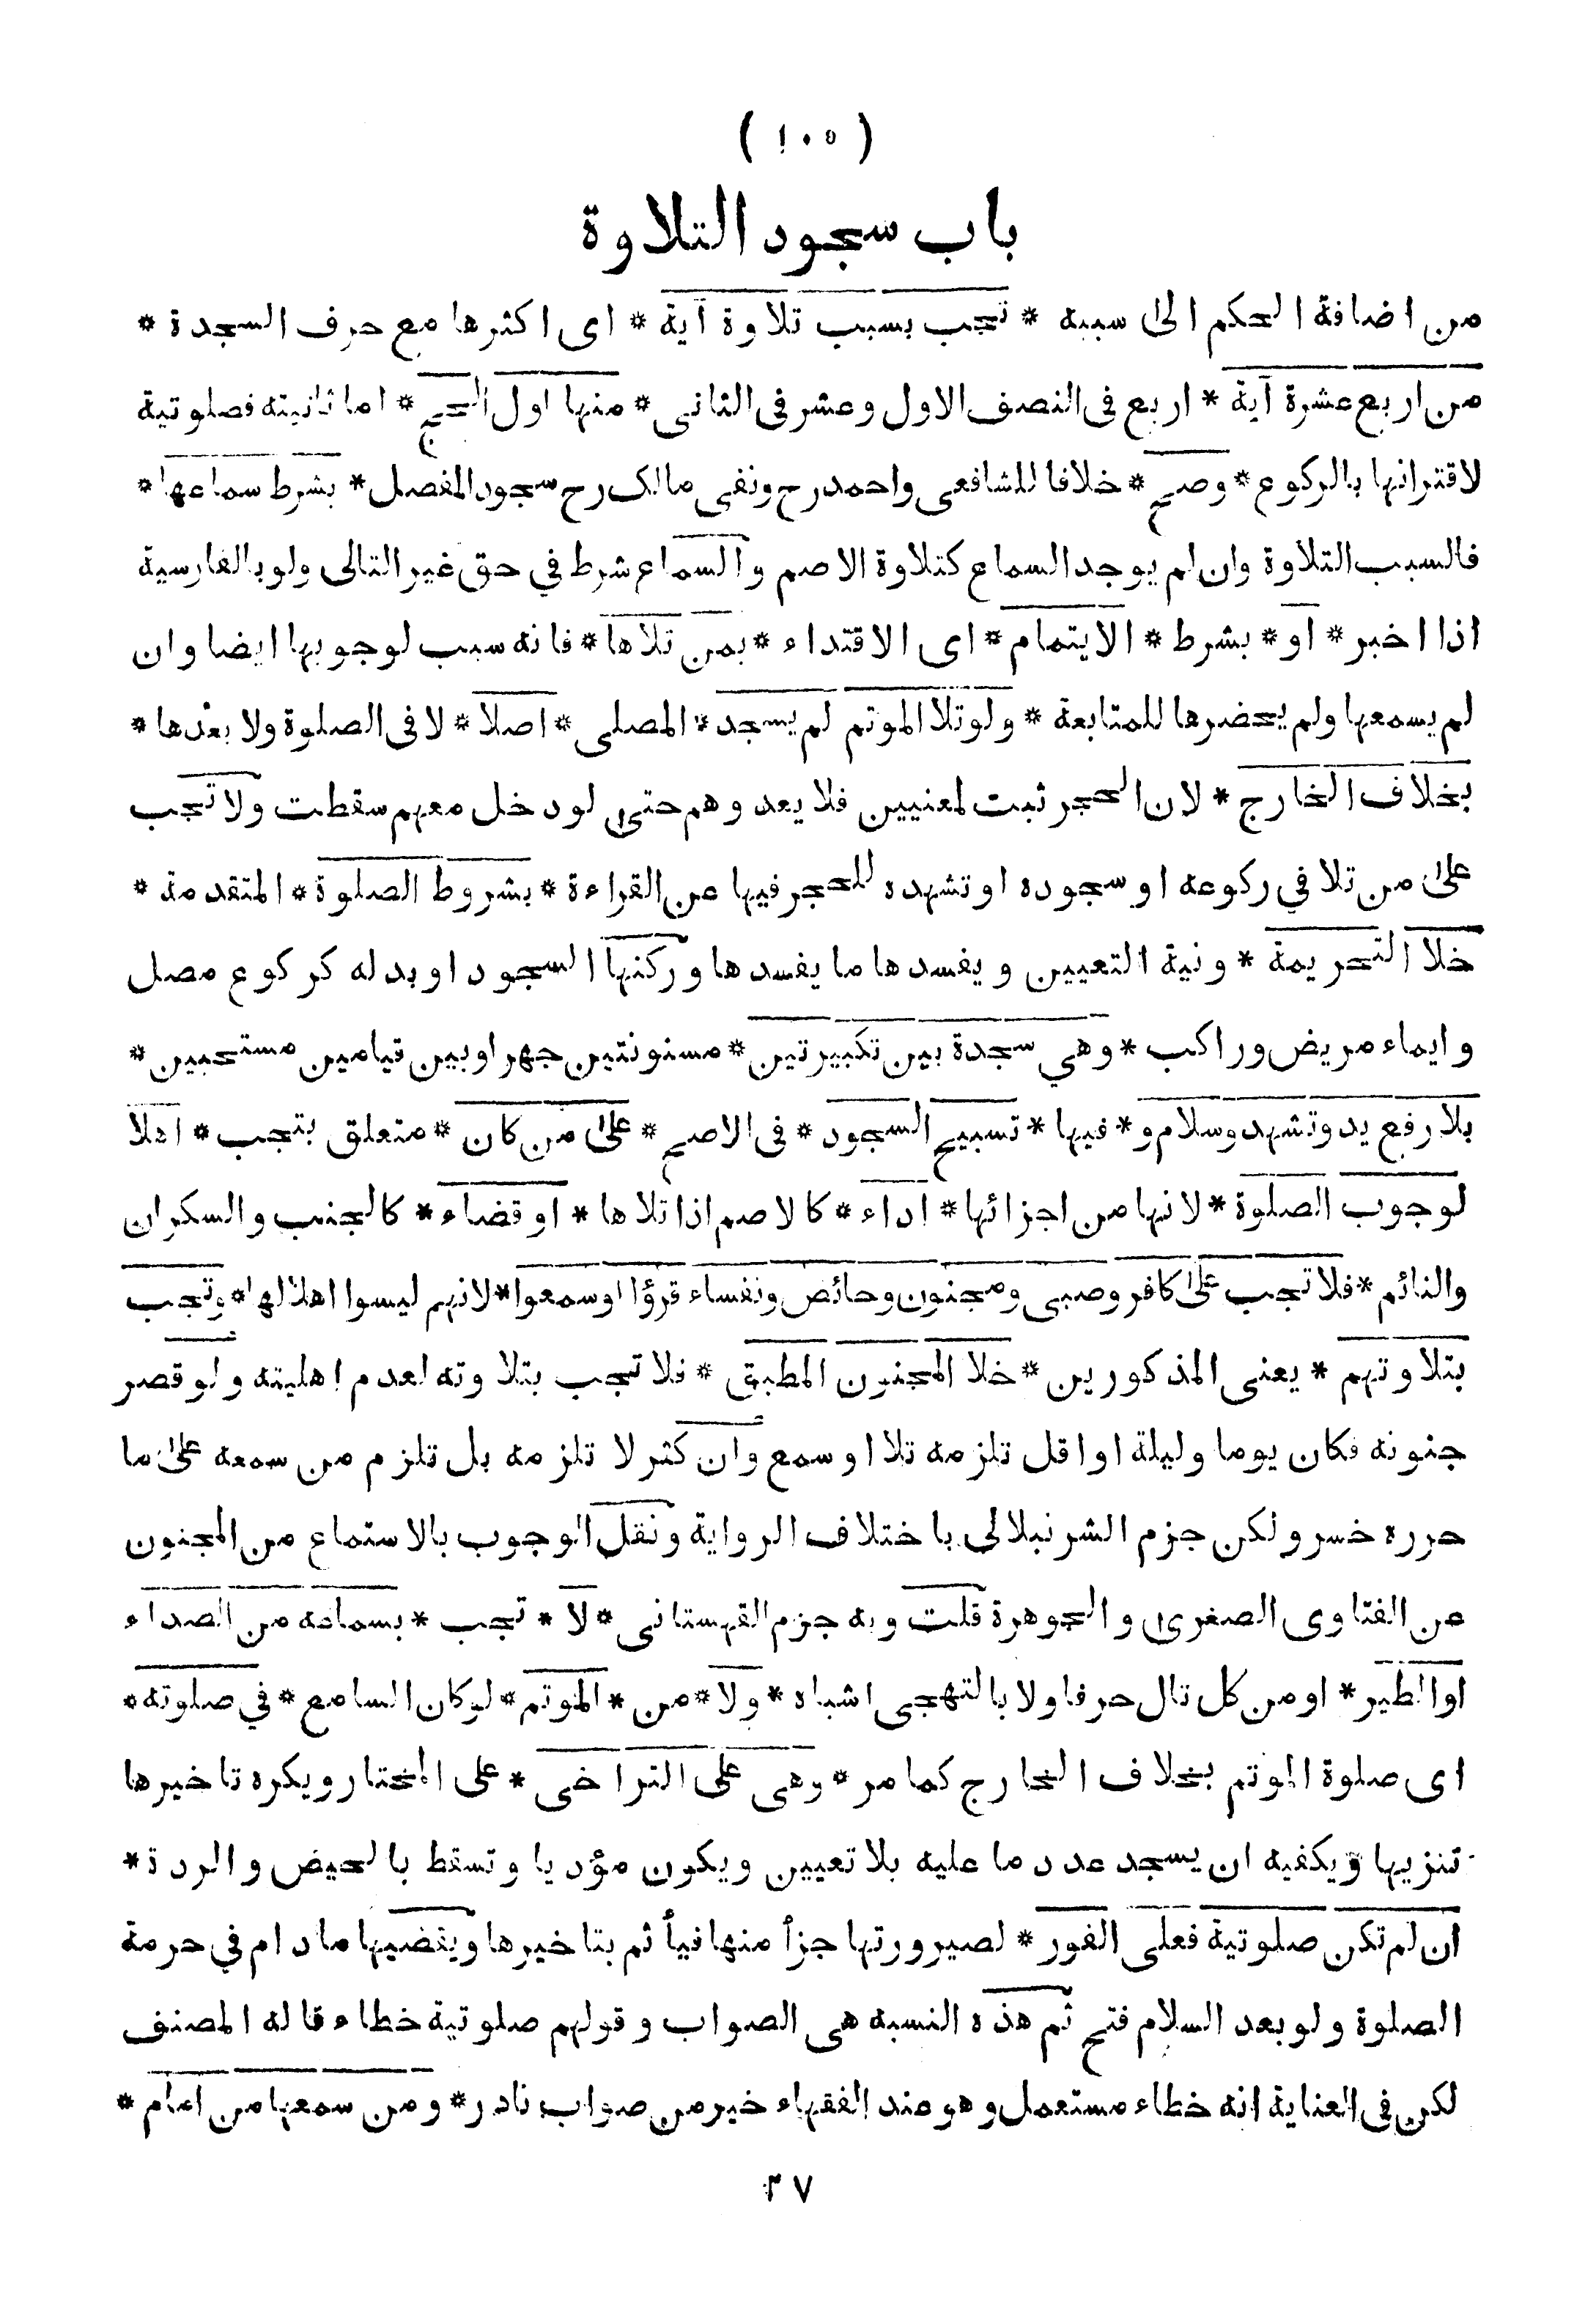 ( ١٠٥ )
باب سجود التلاوة
من اضافة الحكم الى سببه * تجب بسبب تلاوة آية * اى اكثرها مع حرف السجدة *
من اربع عشرة آية * اربع فى النصف الاول وعشر فى الثانى * منها اول الحج * اما ثانيته فصلوتية
لاقترانها بالركوع * وصح * خلافا للشافعى واحمد رح ونفى مالك رح سجود المفصل * بشرط سماعها *
فالسبب التلاوة وان لم يوجد السماع كتلاوة الاصم والسماع شرط في حق غير التالى ولو بالفارسية
اذا اخبر * او * بشرط * الايتمام * اى الاقتداء * بمن تلاها * فانه سبب لوجوبها ايضا وان
لم يسمعها ولم يحضرها للمتابعة * ولو تلا الموتم لم يسجد * المصلى * اصلا * لا فى الصلوة ولا بعدها *
بخلاف الخارج * لان الحجر ثبت لمعنيين فلا يعد وهم حتى لو دخل معهم سقطت ولا تجب
على من تلا في ركوعه او سجوده او تشهده للحجر فيها عن القراءة * بشروط الصلوة * المتقدمة *
خلا التحريمة * ونية التعيين ويفسدها ما يفسدها وركنها السجود او بدله كركوع مصل
وايماء مريض وراكب * وهي سجدة بين تكبيرتين * مسنونتين جهرا وبين قيامين مستحبين *
بلا رفع يد وتشهد وسلام و * فيها * تسبيح السجود * فى الاصح * على من كان * متعلق بتجب * اهلا
لوجوب الصلوة * لانها من اجزائها * اداء * كالاصم اذا تلاها * او قضاء * كالجنب والسكران
والنائم * فلا تجب على كافر وصبى ومجنون وحائض ونفساء قرؤا او سمعوا * لانهم ليسوا اهلا لها * وتجب
بتلاوتهم * يعنى المذكورين * خلا المجنون المطبق * فلا تجب بتلاوته لعدم اهليته ولو قصر
جنونه فكان يوما وليلة او اقل تلزمه تلا او سمع وان كثر لا تلزمه بل تلزم من سمعه على ما
حرره خسرو لكن جزم الشرنبلالى باختلاف الرواية ونقل الوجوب بالاستماع من المجنون
عن الفتاوى الصغرى والجوهرة قلت وبه جزم القهستانى * لا * تجب * بسماعه من الصداء
او الطير * او من كل تال حرفا ولا بالتهجى اشباه * ولا * من * الموتم * لو كان السامع * في صلوته *
اى صلوة الموتم بخلاف الخارج كما مر * وهى على التراخى * على المختار ويكره تاخيرها
تنزيها ويكفيه ان يسجد عدد ما عليه بلا تعيين ويكون مؤديا وتسقط بالحيض والردة *
ان لم تكن صلوتية فعلى الفور * لصيرورتها جزأ منها فيأثم بتاخيرها ويقضيها ما دام في حرمة
الصلوة ولو بعد السلام فتح ثم هذه النسبه هى الصواب وقولهم صلوتية خطاء قاله المصنف
لكن فى العناية انه خطاء مستعمل وهو عند الفقهاء خير من صواب نادر * ومن سمعها من امام *
٢٧